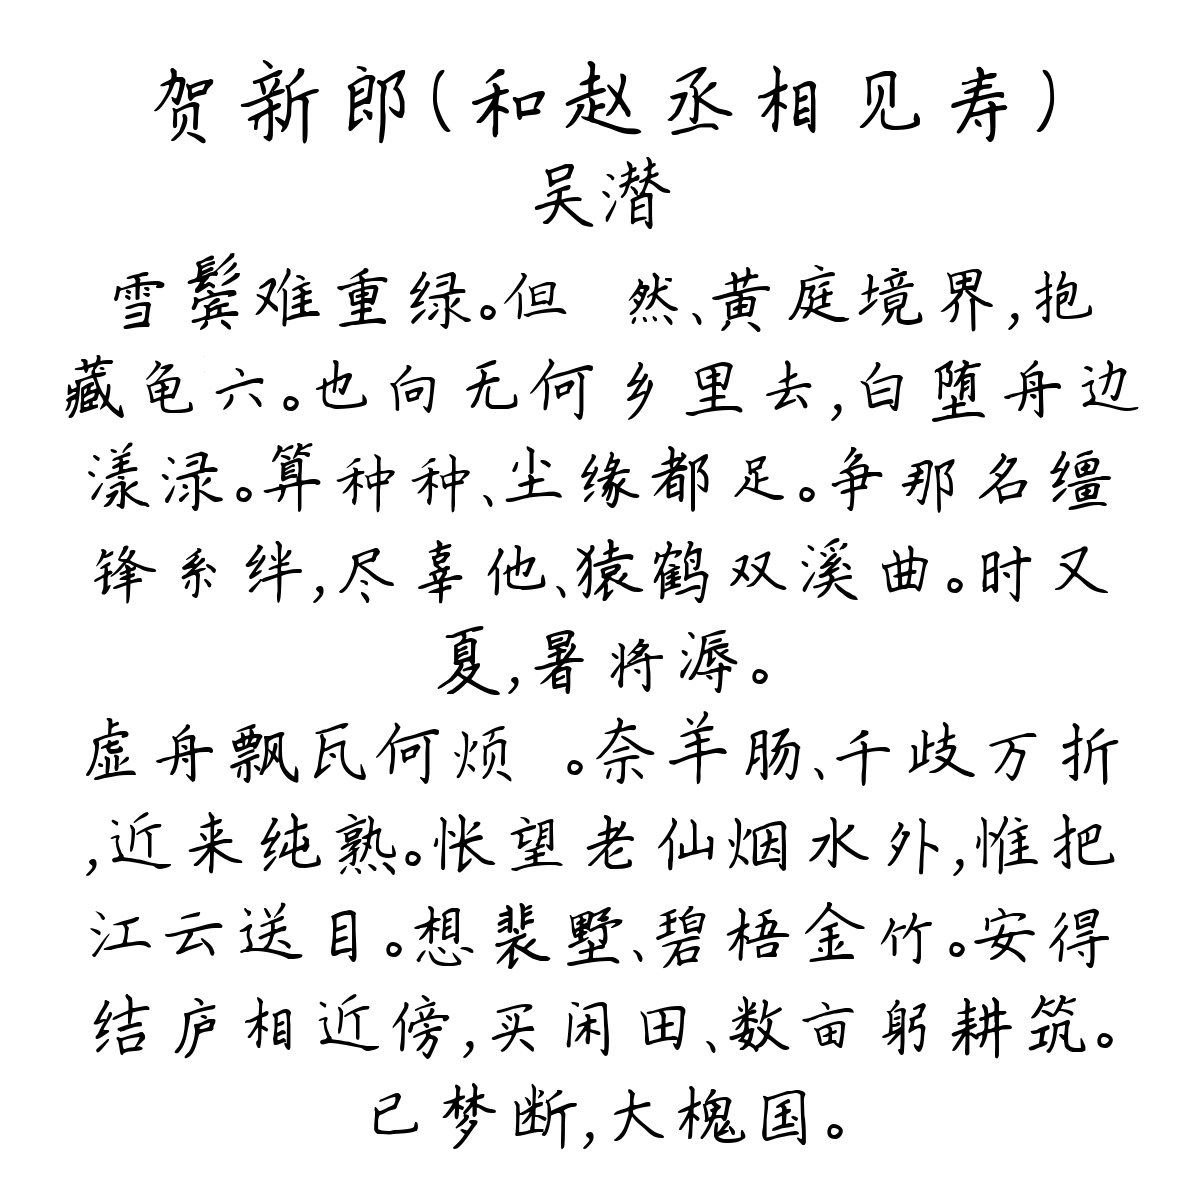 贺新郎(和赵丞相见寿)
吴潜
雪鬓难重绿。但 然、黄庭境界,抱
藏龟六。也向无何乡里去,白堕舟边
漾渌。算种种、尘缘都足。争那名缰
锋系绊,尽辜他、猿鹤双溪曲。时又
夏,暑将溽。
虚舟飘瓦何烦 。奈羊肠、千歧万折
,近来纯熟。怅望老仙烟水外,惟把
江云送目。想裴墅、碧梧金竹。安得
结庐相近傍,买闲田、数亩躬耕筑。
已梦断,大槐国。